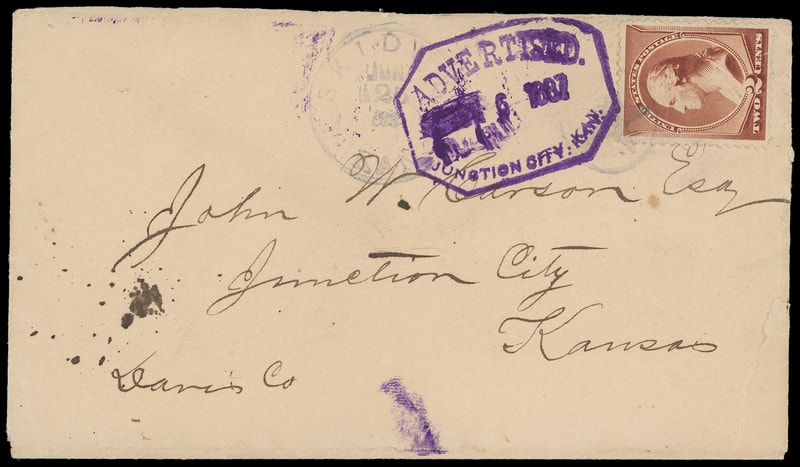 SKIDD
JUN
ADVERTISED.
6 1887
JUNCTION CITY, KAN.
UNITED STATES POSTAGE
TWO 2 CENTS
John W. Carson Esq
Junction City
Kansas
Davis Co